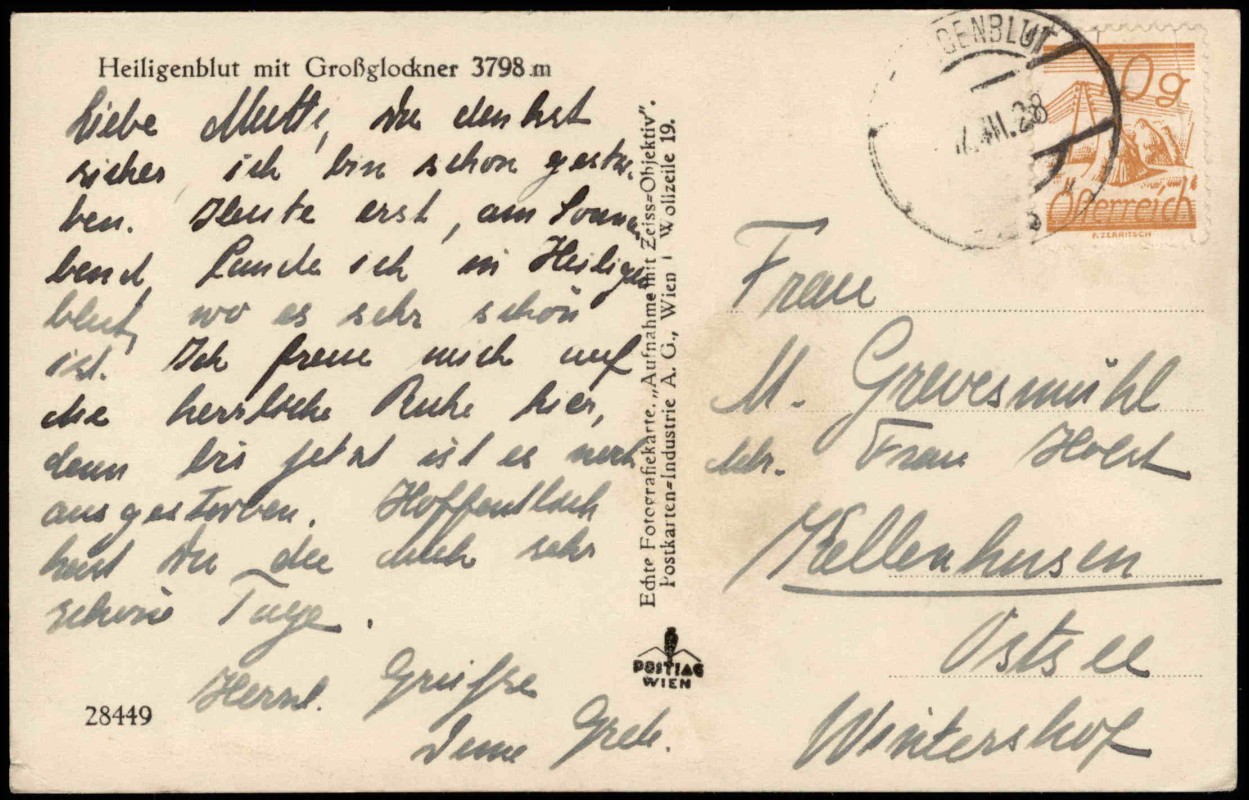 Heiligenblut mit Großglockner 3798 m
Liebe Mutti, Du denkst
sicher, ich bin schon gestor-
ben. Heute erst, am Sonna-
bend, lande ich in Heiligen
blut, wo es sehr schön
ist. Ich freue mich auf
die herrliche Ruhe hier,
denn bis jetzt ist es noch
ausgestorben. Hoffentlich
hast Du auch sehr
schöne Tage.
Herzl. Grüsse
Deine Grete.
28449
Echte Fotografiekarte. „Aufnahme mit Zeiss-Objektiv".
Postkarten-Industrie A. G., Wien I Wollzeile 19.
POSTIAG
WIEN
GENBLUT
.VII.28
10g
Österreich
F. ZERRITSCH
Frau
M. Grevesmühl
adr. Frau Holst
Kellenhusen
Ostsee
Wintershof